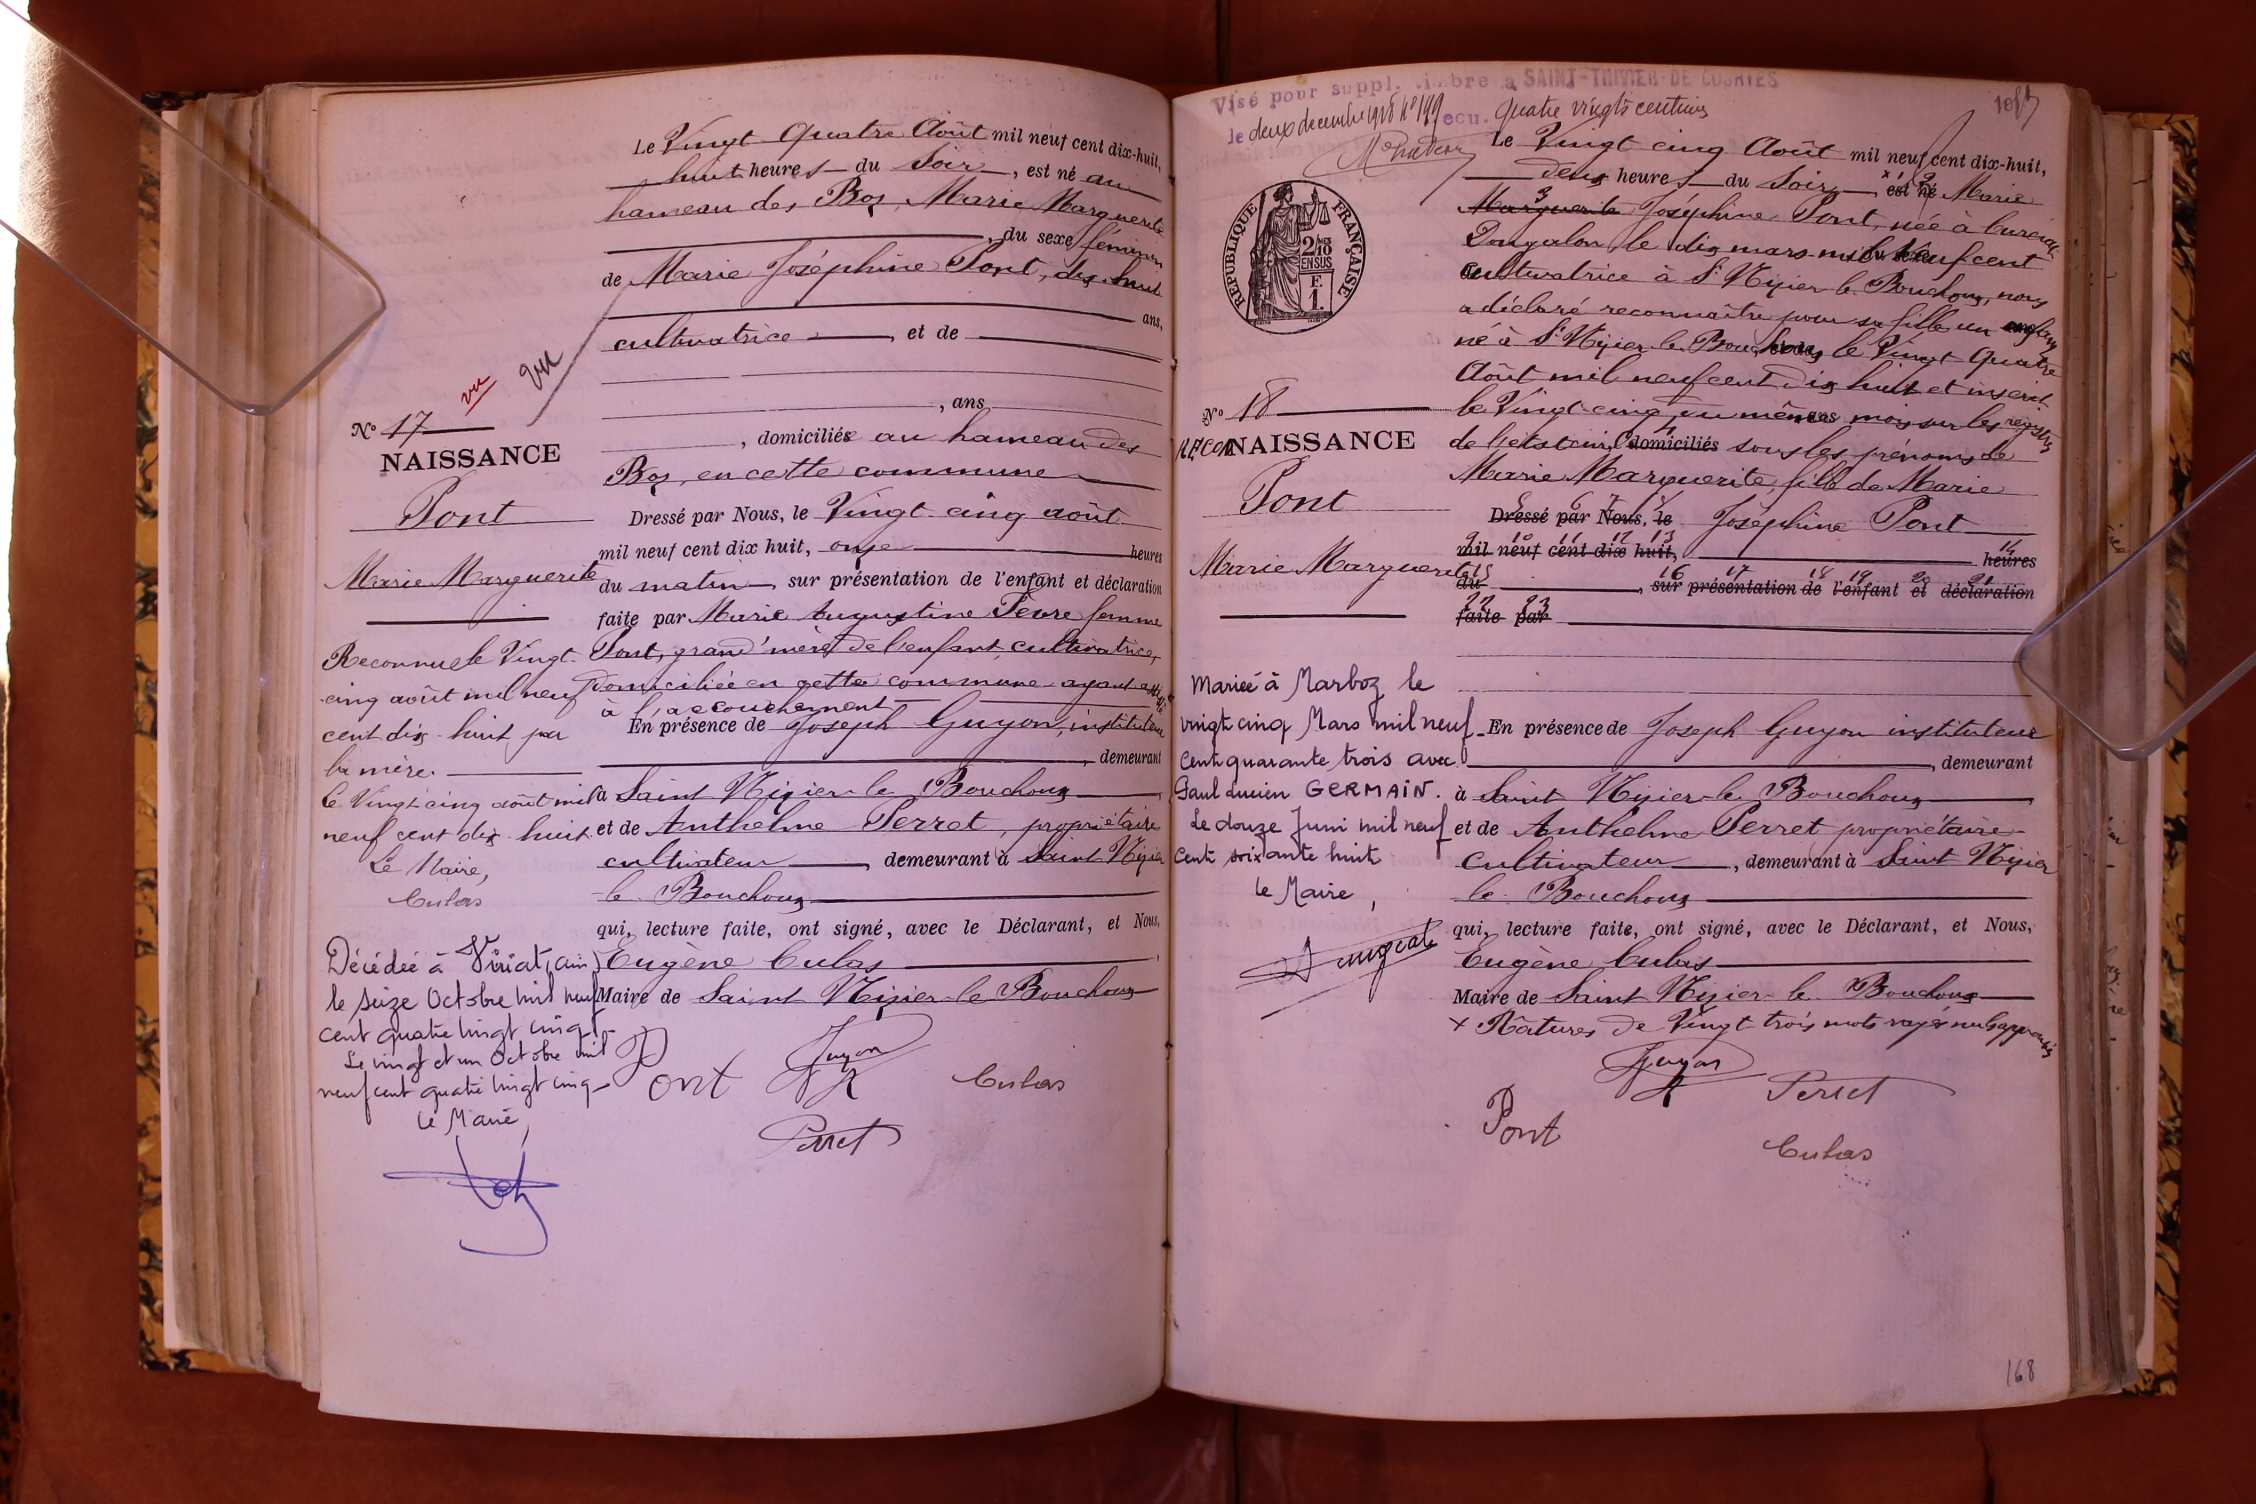 Le Vingt Quatre Août mil neuf cent dix-huit,
huit heures du Soir, est né au
hameau des Bos, Marie Marguerite
, du sexe féminin
de Marie Joséphine Pont, dix huit
ans,
cultivatrice et de
, ans
, domiciliés au hameau des
Bos, en cette commune
Dressé par Nous, le Vingt cinq août
mil neuf cent dix huit, onze heures
du matin, sur présentation de l'enfant et déclaration
faite par Marie Augustine Fevre femme
Pont, grand'mère de l'enfant, cultivatrice,
domiciliée en cette commune ayant assisté
à l'accouchement
En présence de Joseph Guyon, instituteur
, demeurant
à Saint Nizier le Bouchoux
et de Anthelme Perret, propriétaire
cultivateur, demeurant à Saint Nizier
le Bouchoux
qui, lecture faite, ont signé, avec le Déclarant, et Nous,
Eugène Culas
Maire de Saint Nizier le Bouchoux
Pont Guyon Culas
Perret
vu
vu
N° 17
NAISSANCE
Pont
Marie Marguerite
Reconnue le Vingt
cinq août mil neuf
cent dix-huit par
la mère.
le Vingt cinq août mil
neuf cent dix huit
Le Maire,
Culas
Décédée à Viriat (Ain)
le seize Octobre mil neuf
cent quatre vingt cinq.
Le vingt et un Octobre mil
neuf cent quatre vingt cinq
Le Maire,
Visé pour suppl. timbre à SAINT-TRIVIER-DE-COURTES
le deux decembre 1918 N° 149 reçu. quatre vingts centimes
REPUBLIQUE FRANÇAISE
2/10
EN SUS
F.
1.
N° 18
RECON NAISSANCE
Pont
Marie Marguerite
Mariée à Marboz le
vingt cinq Mars mil neuf
cent quarante trois avec
Paul Lucien GERMAIN.
Le douze Juin mil neuf
cent soixante huit
le Maire,
Le Vingt cinq Août mil neuf cent dix-huit,
deux heures du Soir, est né Marie
Marguerite Joséphine Pont, née à Curciat
Dongalon, le dix mars mil neuf cent
cultivatrice à St Nizier le Bouchoux, nous
a déclaré reconnaître pour sa fille un enfant
né à St Nizier le Bouchoux le Vingt Quatre
Août mil neuf cent dix huit et inscrit
le Vingt-cinq du même mois sur les registres
de l'état civil domiciliés sous les prénoms de
Marie Marguerite, fille de Marie
Dressé par Nous, le Joséphine Pont
mil neuf cent dix huit, heures
du, sur présentation de l'enfant et déclaration
faite par
En présence de Joseph Guyon instituteur
, demeurant
à Saint Nizier le Bouchoux
et de Anthelme Perret propriétaire
cultivateur, demeurant à Saint Nizier
le Bouchoux
qui, lecture faite, ont signé, avec le Déclarant, et Nous,
Eugène Culas
Maire de Saint Nizier le Bouchoux
+ Ratures de Vingt trois mots rayés nuls approuvés
Guyon
Pont Perret
Culas
168